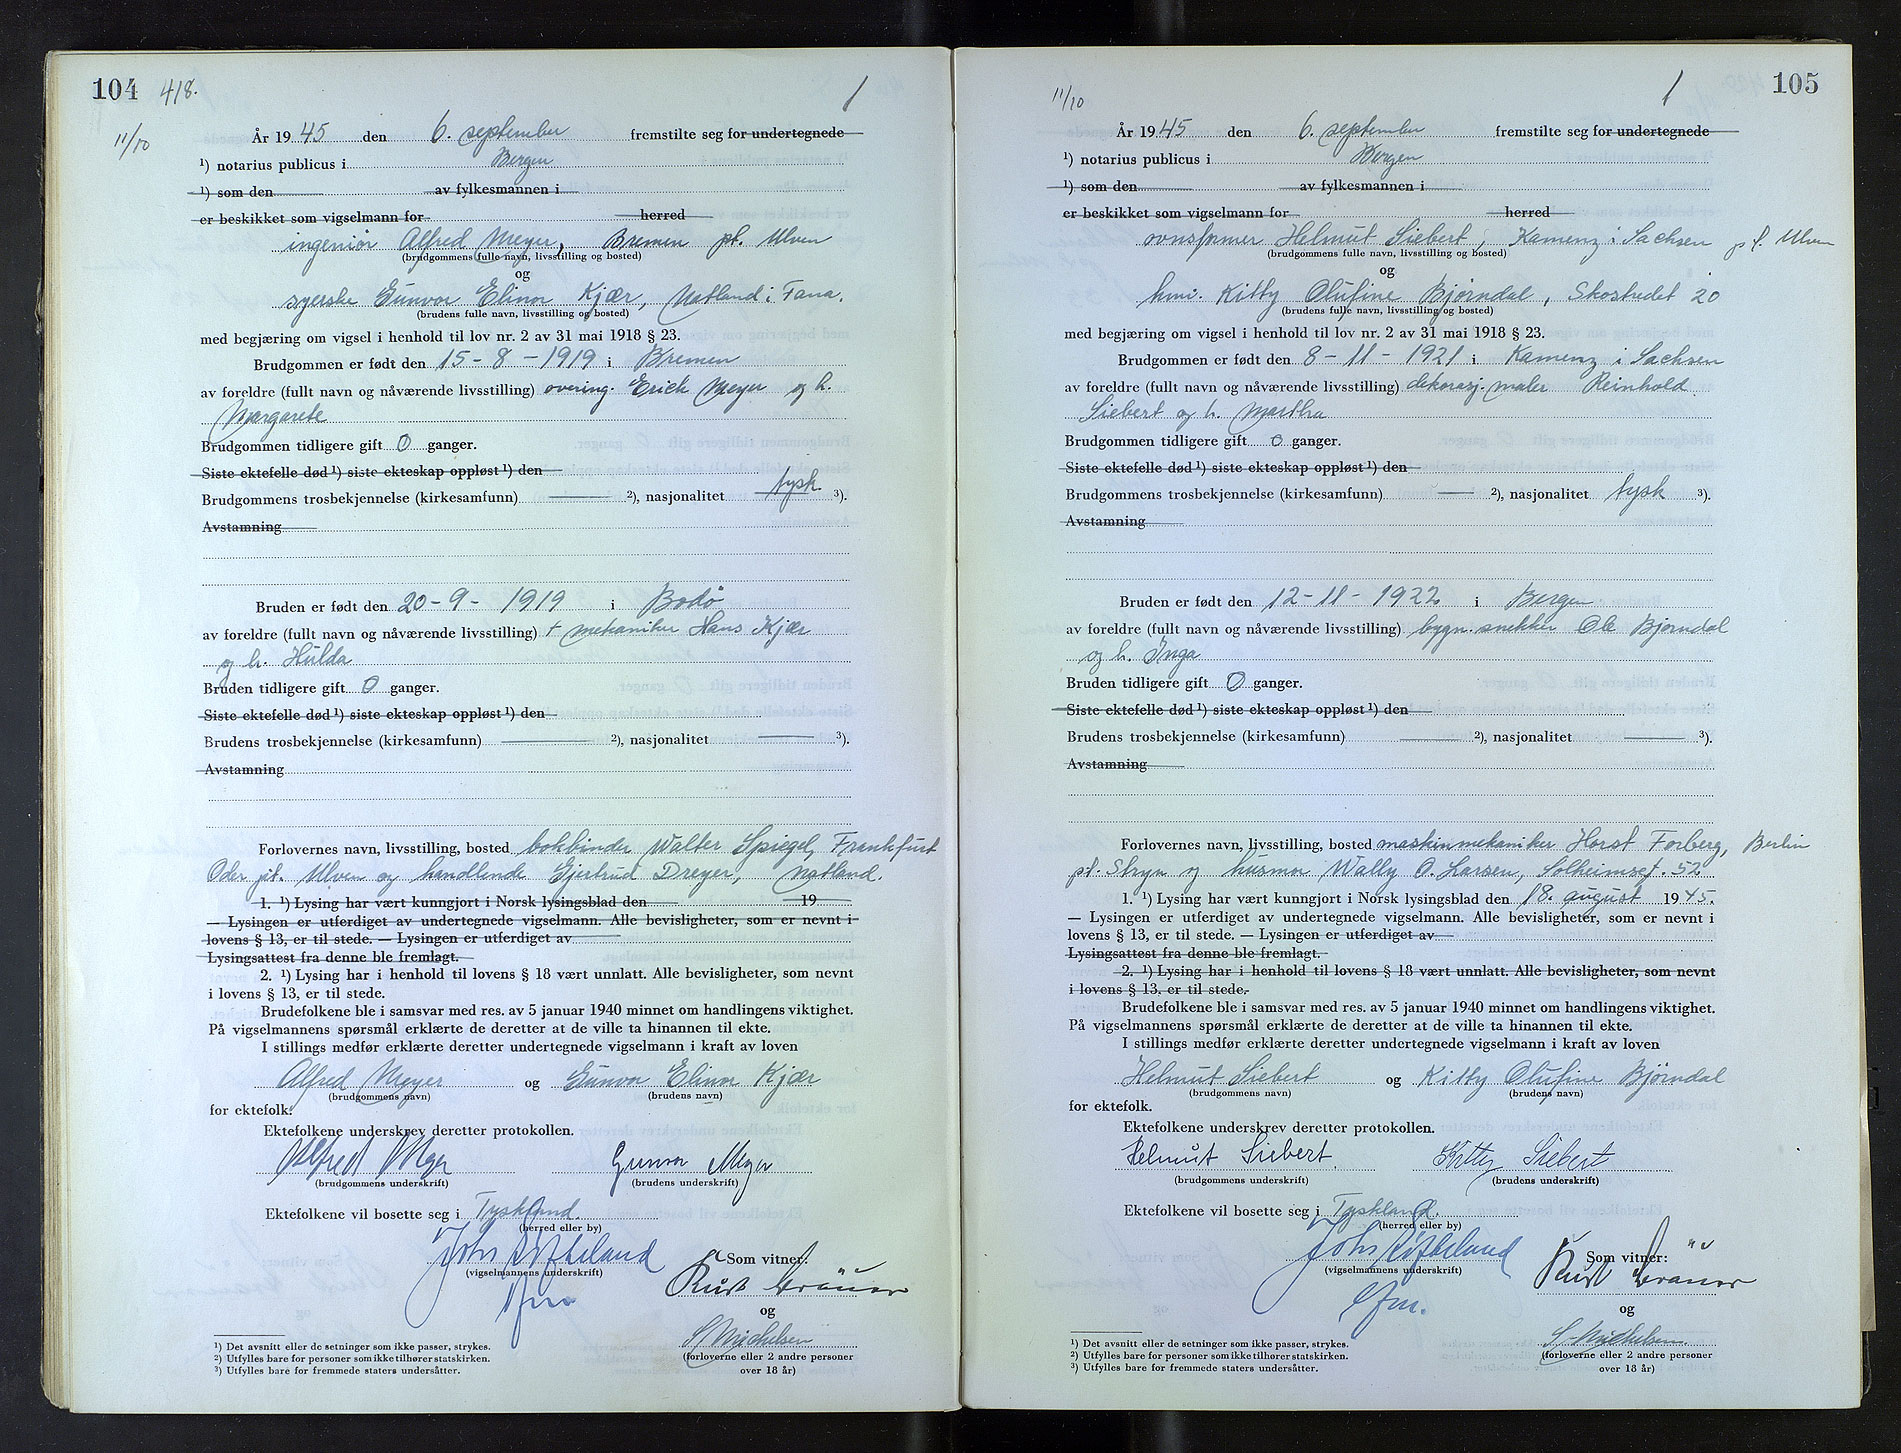 104 418. 1
11/10
År 1945 den 6. september fremstilte seg for undertegnede
¹) notarius publicus i Bergen
¹) som den av fylkesmannen i
er beskikket som vigselmann for herred
ingeniør Alfred Meyer, Bremen pt. Ulven
(brudgommens fulle navn, livsstilling og bosted)
og
syerske Gunvor Elinor Kjær, Natland i Fana.
(brudens fulle navn, livsstilling og bosted)
med begjæring om vigsel i henhold til lov nr. 2 av 31 mai 1918 § 23.
Brudgommen er født den 15-8-1919 i Bremen
av foreldre (fullt navn og nåværende livsstilling) overing. Erich Meyer og h.
Margarete
Brudgommen tidligere gift 0 ganger.
Siste ektefelle død ¹) siste ekteskap oppløst ¹) den
Brudgommens trosbekjennelse (kirkesamfunn) — ²), nasjonalitet tysk ³).
Avstamning
Bruden er født den 20-9-1919 i Bodø
av foreldre (fullt navn og nåværende livsstilling) + mekaniker Hans Kjær
og h. Hulda
Bruden tidligere gift 0 ganger.
Siste ektefelle død ¹) siste ekteskap oppløst ¹) den
Brudens trosbekjennelse (kirkesamfunn) — ²), nasjonalitet — ³).
Avstamning
Forlovernes navn, livsstilling, bosted bokbinder Walter Spiegel, Frankfurt
Oder pt. Ulven og handlende Gjertrud Dreyer, Natland.
1. ¹) Lysing har vært kunngjort i Norsk lysingsblad den 19
— Lysingen er utferdiget av undertegnede vigselmann. Alle bevisligheter, som er nevnt i
lovens § 13, er til stede. — Lysingen er utferdiget av
Lysingsattest fra denne ble fremlagt.
2. ¹) Lysing har i henhold til lovens § 18 vært unnlatt. Alle bevisligheter, som nevnt
i lovens § 13, er til stede.
Brudefolkene ble i samsvar med res. av 5 januar 1940 minnet om handlingens viktighet.
På vigselmannens spørsmål erklærte de deretter at de ville ta hinannen til ekte.
I stillings medfør erklærte deretter undertegnede vigselmann i kraft av loven
Alfred Meyer og Gunvor Elinor Kjær
(brudgommens navn) (brudens navn)
for ektefolk.
Ektefolkene underskrev deretter protokollen.
Alfred Meyer Gunvor Meyer
(brudgommens underskrift) (brudens underskrift)
Ektefolkene vil bosette seg i Tyskland.
(herred eller by)
Som vitner:
(vigselmannens underskrift) Kurt
og
S Michelsen
(forloverne eller 2 andre personer
over 18 år)
¹) Det avsnitt eller de setninger som ikke passer, strykes.
²) Utfylles bare for personer som ikke tilhører statskirken.
³) Utfylles bare for fremmede staters undersåtter.
11/10 1 105
År 1945 den 6. september fremstilte seg for undertegnede
¹) notarius publicus i Bergen
¹) som den av fylkesmannen i
er beskikket som vigselmann for herred
ovnsformer Helmut Siebert, Kamenz i Sachsen pt. Ulven
(brudgommens fulle navn, livsstilling og bosted)
og
hmi. Kitty Olufine Bjørndal, Skostredet 20
(brudens fulle navn, livsstilling og bosted)
med begjæring om vigsel i henhold til lov nr. 2 av 31 mai 1918 § 23.
Brudgommen er født den 8-11-1921 i Kamenz i Sachsen
av foreldre (fullt navn og nåværende livsstilling) dekorasj. maler Reinhold
Siebert og h. Martha
Brudgommen tidligere gift 0 ganger.
Siste ektefelle død ¹) siste ekteskap oppløst ¹) den
Brudgommens trosbekjennelse (kirkesamfunn) — ²), nasjonalitet tysk ³).
Avstamning
Bruden er født den 12-11-1922 i Bergen
av foreldre (fullt navn og nåværende livsstilling) bygn. snekker Ole Bjørndal
og h. Inga
Bruden tidligere gift 0 ganger.
Siste ektefelle død ¹) siste ekteskap oppløst ¹) den
Brudens trosbekjennelse (kirkesamfunn) — ²), nasjonalitet — ³).
Avstamning
Forlovernes navn, livsstilling, bosted maskinmekaniker Horst Forberg, Berlin
pt. Stryn og husmor Wally O. Larsen, Solheimsgt. 52
1. ¹) Lysing har vært kunngjort i Norsk lysingsblad den 18. august 1945.
— Lysingen er utferdiget av undertegnede vigselmann. Alle bevisligheter, som er nevnt i
lovens § 13, er til stede. — Lysingen er utferdiget av
Lysingsattest fra denne ble fremlagt.
2. ¹) Lysing har i henhold til lovens § 18 vært unnlatt. Alle bevisligheter, som nevnt
i lovens § 13, er til stede.
Brudefolkene ble i samsvar med res. av 5 januar 1940 minnet om handlingens viktighet.
På vigselmannens spørsmål erklærte de deretter at de ville ta hinannen til ekte.
I stillings medfør erklærte deretter undertegnede vigselmann i kraft av loven
Helmut Siebert og Kitty Olufine Bjørndal
(brudgommens navn) (brudens navn)
for ektefolk.
Ektefolkene underskrev deretter protokollen.
Helmut Siebert. Kitty Siebert
(brudgommens underskrift) (brudens underskrift)
Ektefolkene vil bosette seg i Tyskland.
(herred eller by)
Som vitner:
(vigselmannens underskrift) Kurt
og
S Michelsen.
(forloverne eller 2 andre personer
over 18 år)
¹) Det avsnitt eller de setninger som ikke passer, strykes.
²) Utfylles bare for personer som ikke tilhører statskirken.
³) Utfylles bare for fremmede staters undersåtter.